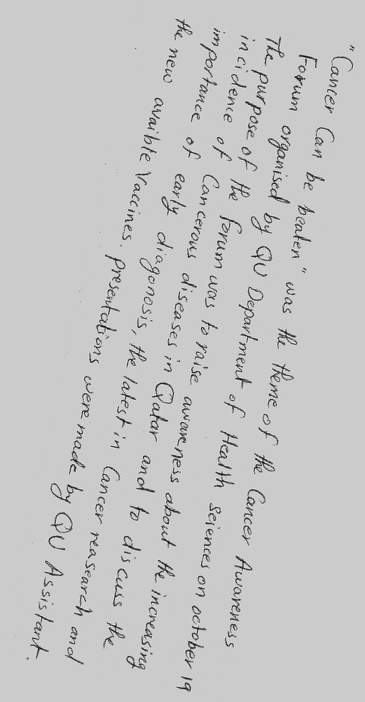 "Cancer Can be beaten" was the theme of the Cancer Awareness
Forum organised by QU Department of Health Sciences on october 19
The purpose of the forum was to raise awareness about the increasing
incidence of Cancerous diseases in Qatar and to discuss the
importance of early diagonosis, the latest in Cancer reasearch and
the new availble Vaccines. presentations were made by QU Assistant.